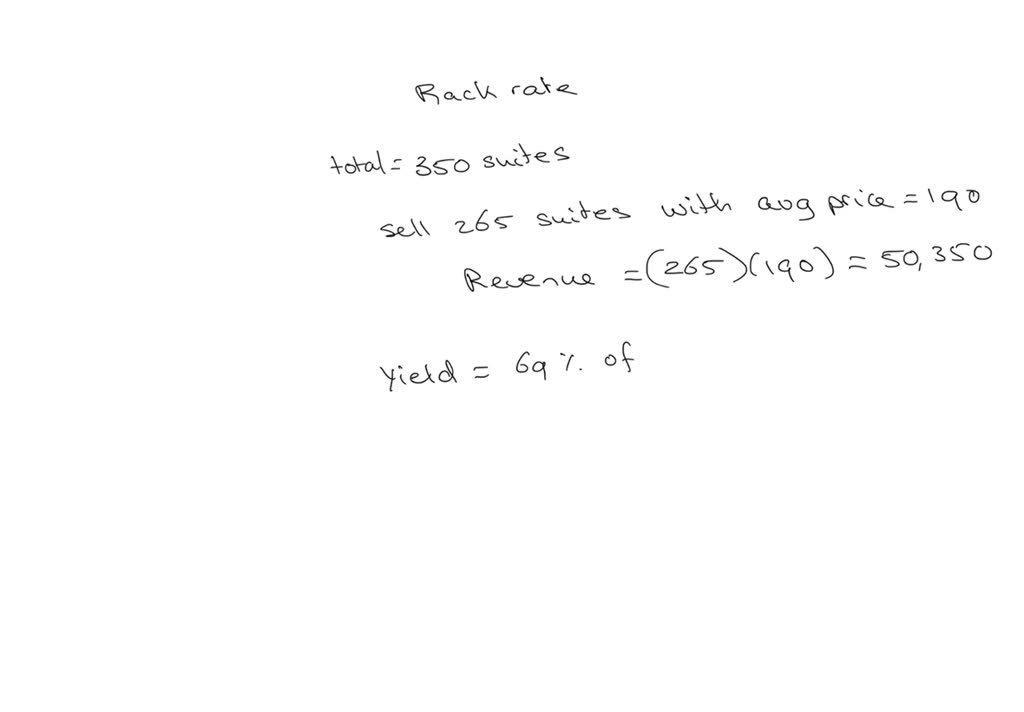 Rack rate
total = 350 suites
sell 265 suites with avg price = 190
Revenue = (265)(190) = 50,350
Yield = 69 % of